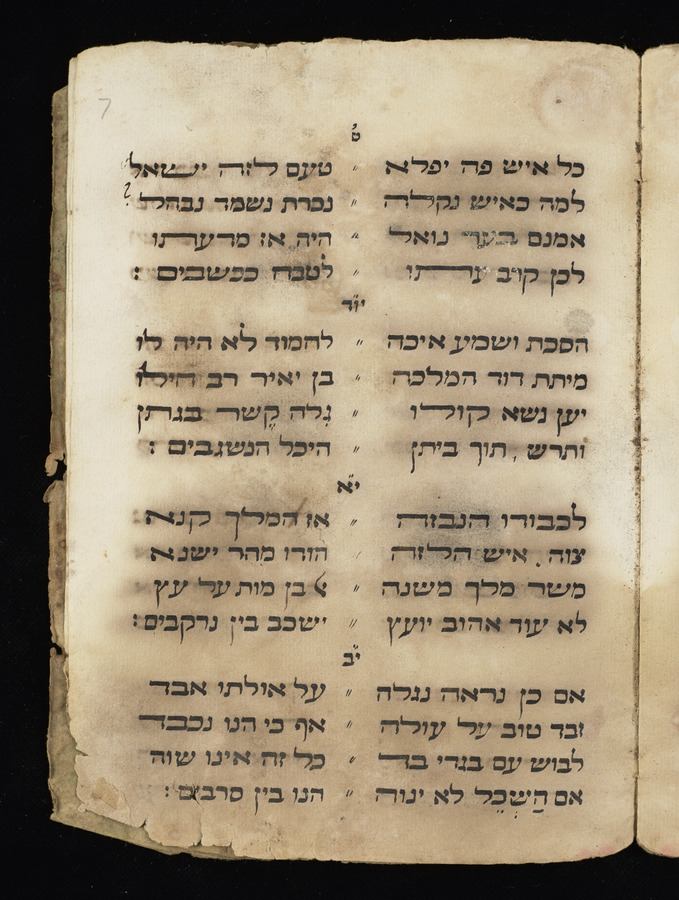 7
ט
כל איש פה יפלא ״ טעם לזה ישאל
למה כאיש נקלה ״ נכרת נשמד נבהל
אמנם בער נואל ״ היה אז מדעתו
לכן קויב ״ לטבח ככשבים :
יוד
הסכת ושמע איכה ״ לחמוד לא היה לו
מיתת דוד המלכה ״ בן יאיר רב חילו
יען נשא קולו ״ גלה קשר בגתן
ותרש , תוך ביתן ״ היכל הנשגבים :
יא
לכבודו הנבזה ״ אז המלך קנא
צוה , איש הלזה ״ הורו מהר ישנא
משר מלך משנה ״ בן מות על עץ
לא עוד אהוב יועץ ״ ישכב בין נרקבים :
יב
אם כן נראה נגלה ״ על אולתו אבד
זבד טוב על עולה ״ אף כי הנו נכבד
לבוש עם בגדי בד ״ כל זה אינו שוה
אם השכל לא ינוה ״ הנו בין סרבים :